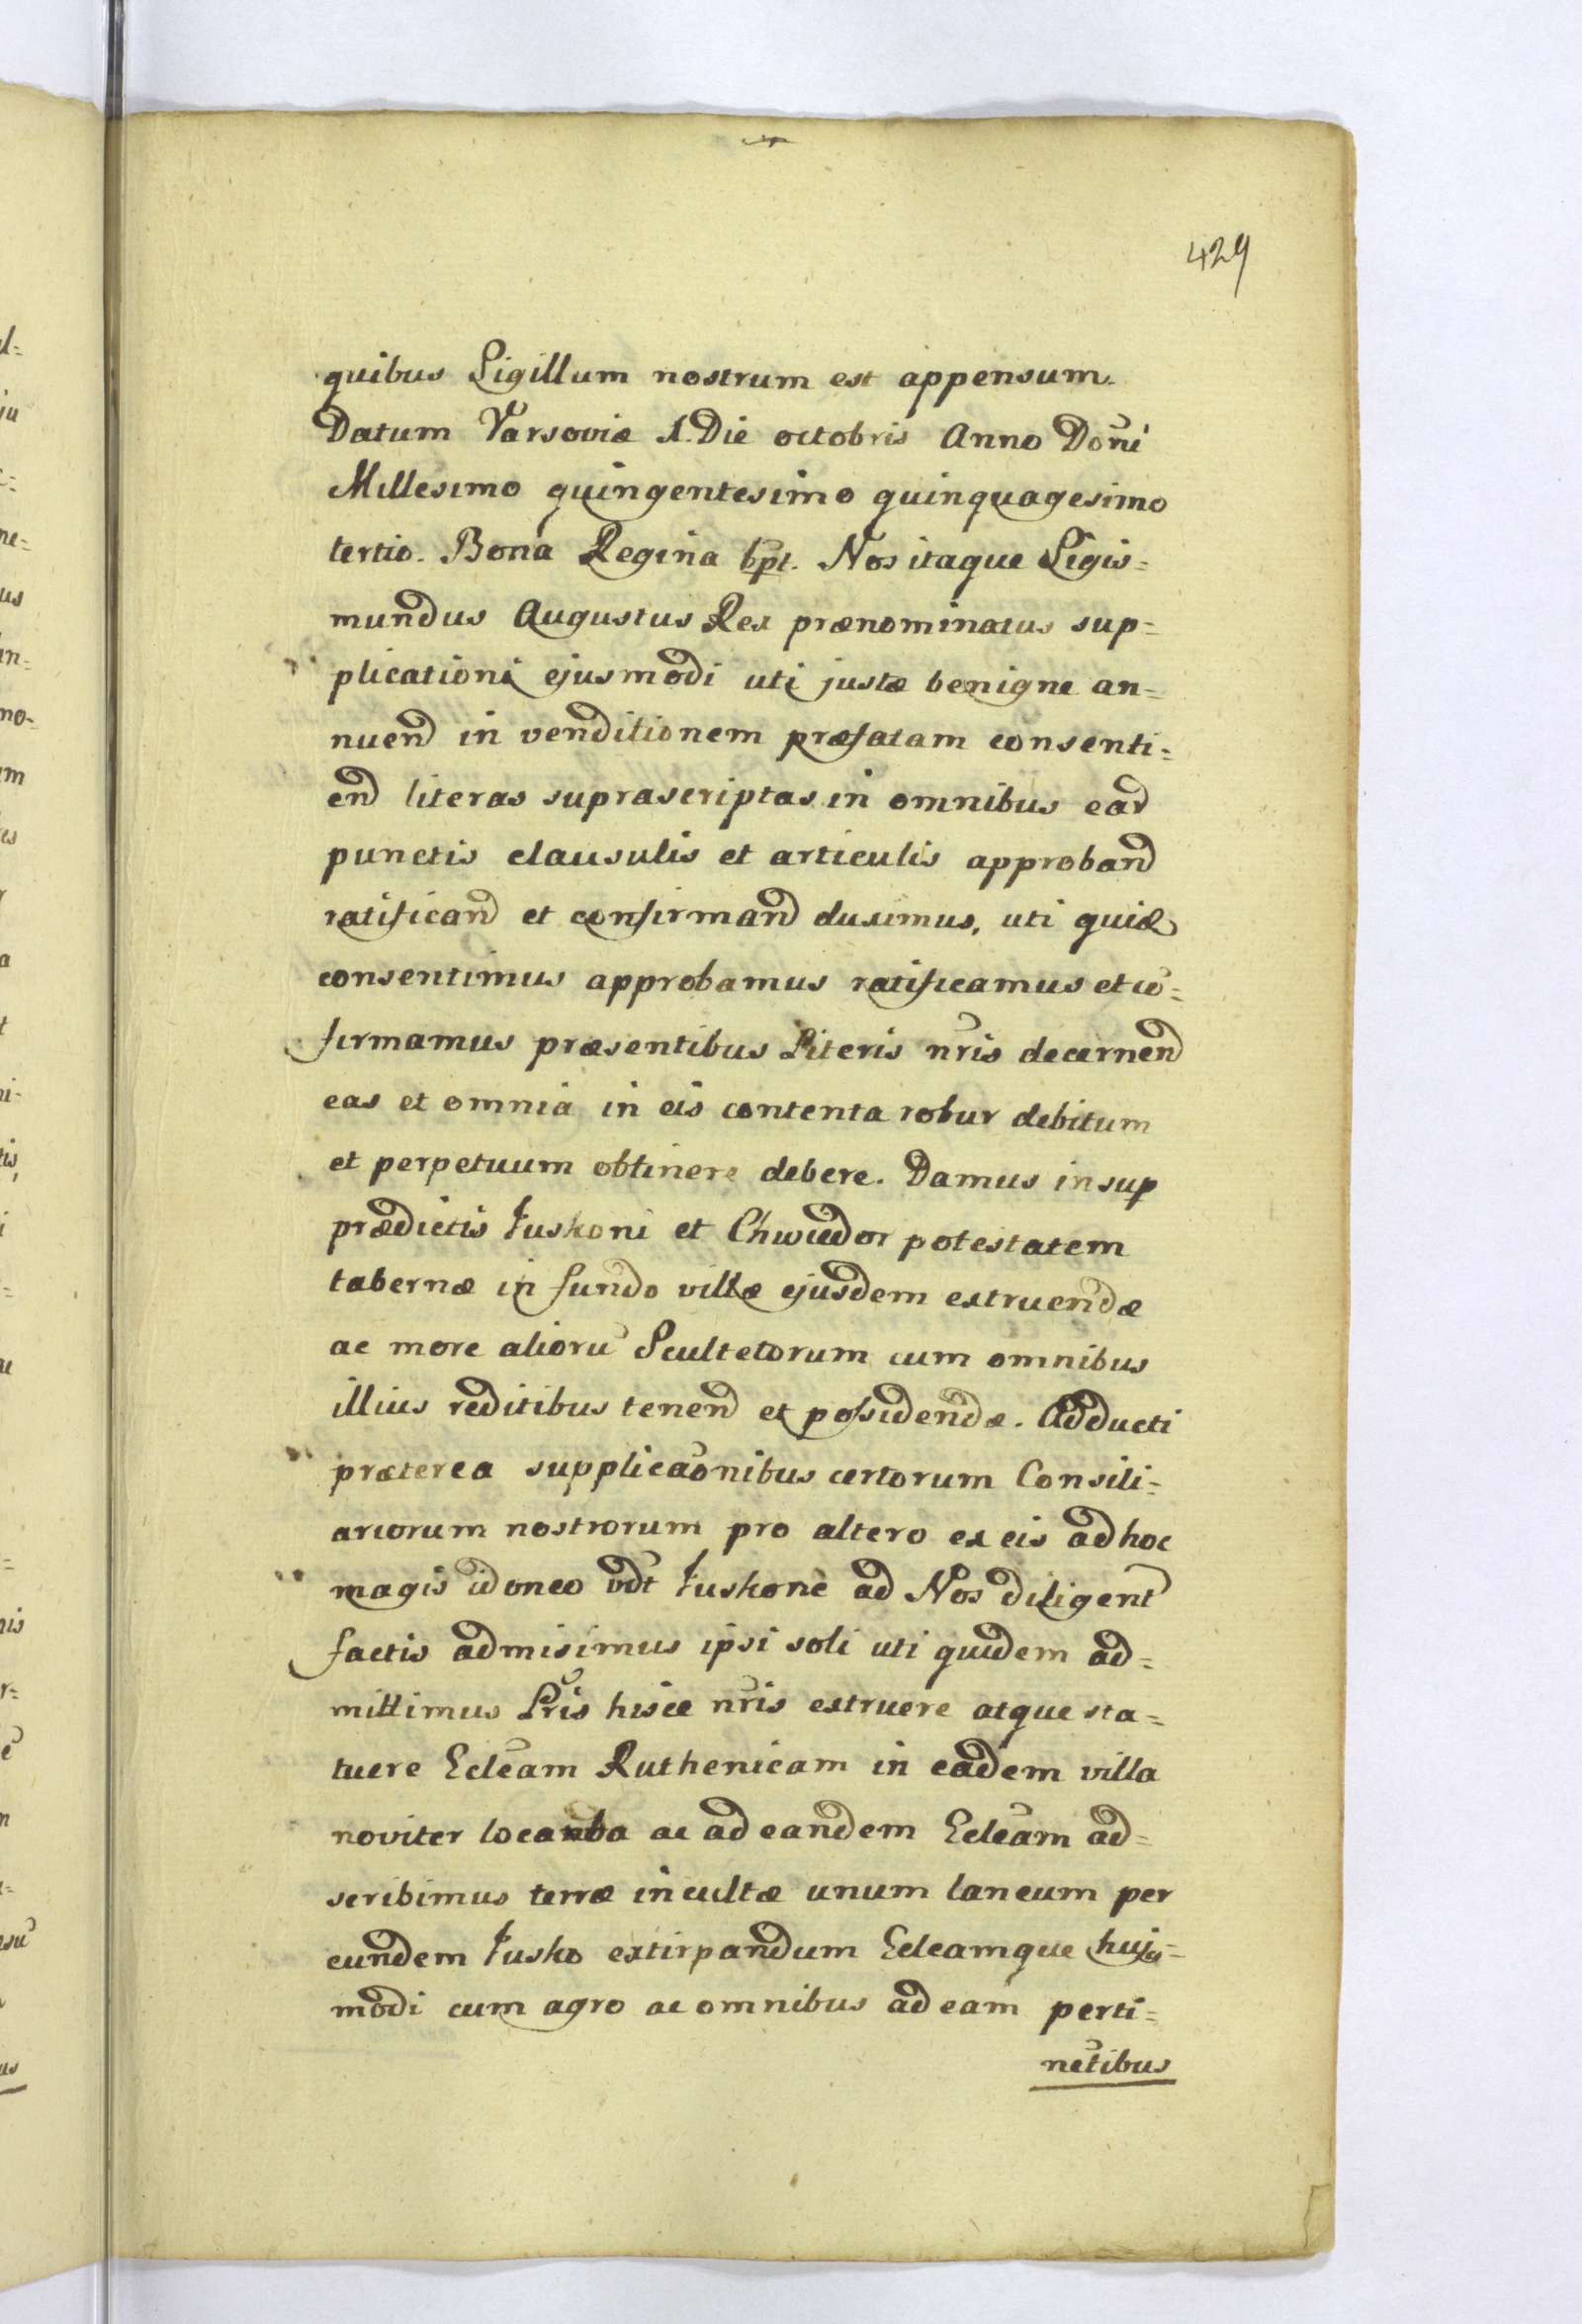 429
quibus Sigillum nostrum est appensum.
Datum Varsoviæ 1. Die octobris Anno Doni
Millesimo quingentesimo quinquagesimo
tertio. Bona Regina spt. Nos itaque Sigis=
mundus Augustus Rex prænominatus sup=
plicationi ejusmodi uti justæ benigne an=
nuend in venditionem præfatam consenti=
end literas suprascriptas in omnibus eard
punctis clausulis et articulis approband
ratificand et confirmand duximus, uti quidem
consentimus approbamus ratificamus et co=
firmamus præsentibus Literis nris decernend
eas et omnia in eis contenta robur debitum
et perpetuum obtinere debere. Damus insup
prædictis Juskoni et Chwiedor potestatem
tabernæ in fundo villæ ejusdem extruendæ
ac more alioru Scultetorum cum omnibus
illius reditibus tenend et possidendæ. Adducti
præterea supplicaonibus certorum Consili=
ariorum nostrorum pro altero ex eis ad hoc
magis idoneo vdt Juskone ad Nos diligent
factis admisimus ipsi soli uti quidem ad=
mittimus Lris hisce nris extruere atque sta=
tuere Ecleam Ruthenicam in eadem villa
noviter locanda ac ad eandem Ecleam ad=
scribimus terræ incultæ unum laneum per
eundem Jusko extirpandum Ecleamque huj9=
modi cum agro ac omnibus ad eam perti=
netibus